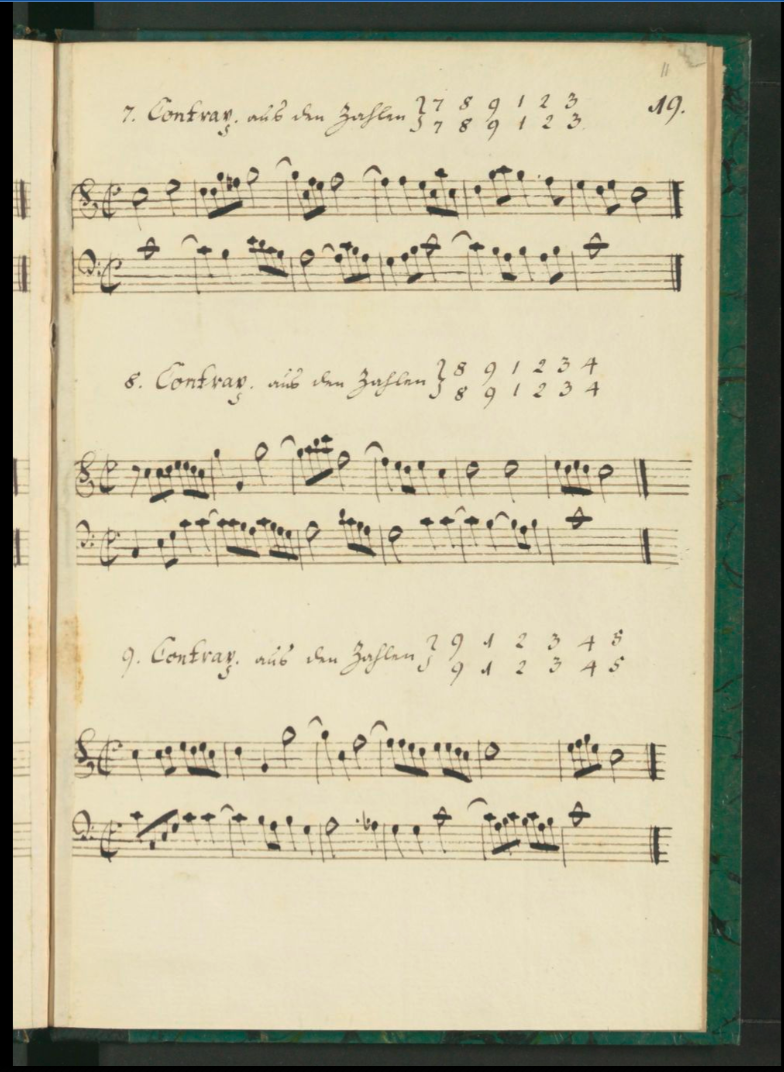 11
7. Contrap. aus den Zahlen 7 8 9 1 2 3
7 8 9 1 2 3.
19.
8. Contrap. aus den Zahlen 8 9 1 2 3 4
8 9 1 2 3 4
9. Contrap. aus den Zahlen 9 1 2 3 4 5
9 1 2 3 4 5